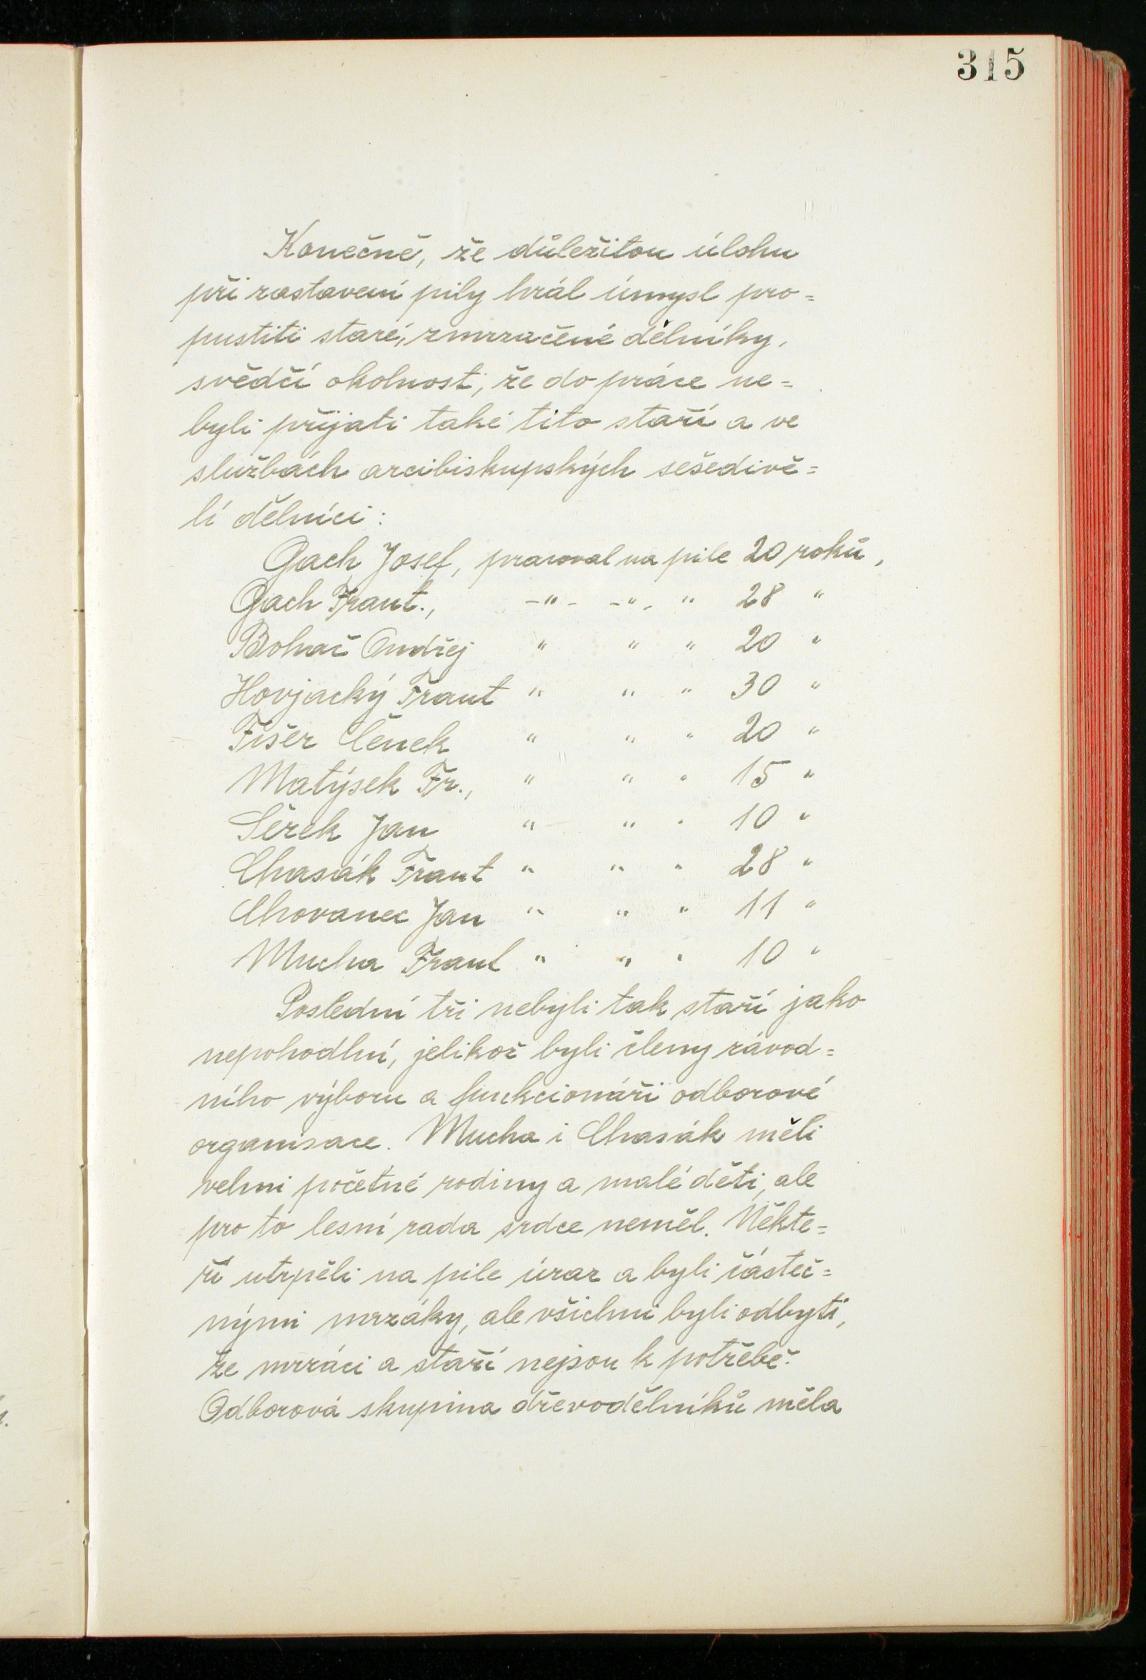 315
Konečně, že důležitou úlohu
při zastavení pily hrál úmysl pro=
pustiti staré, zmrzačené dělníky,
svědčí okolnost, že do práce ne=
byli přijati také tito staří a ve
službách arcibiskupských sešedivě=
lí dělníci:
Gach Josef, pracoval na pile 20 roků,
Gach Frant., -"- -"- " 28 "
Boháč Ondřej " " " 20 "
Hovjacký Frant " " " 30 "
Fišer Čeněk " " " 20 "
Matýsek Fr., " " " 15 "
Šěrek Jan " " " 10 "
Chasák Frant " " " 28 "
Chovanec Jan " " " 11 "
Mucha Frant " " " 10 "
Poslední tři nebyli tak staří jako
nepohodlní, jelikož byli členy závod=
ního výboru a funkcionáři odborové
organisace. Mucha i Chasák měli
velmi početné rodiny a malé děti, ale
pro to lesní rada srdce neměl. Někte=
ří utrpěli na pile úraz a byli částeč=
nými mrzáky, ale všichni byli odbyti,
že mrzáci a staří nejsou k potřebě.
Odborová skupina dřevodělníků měla